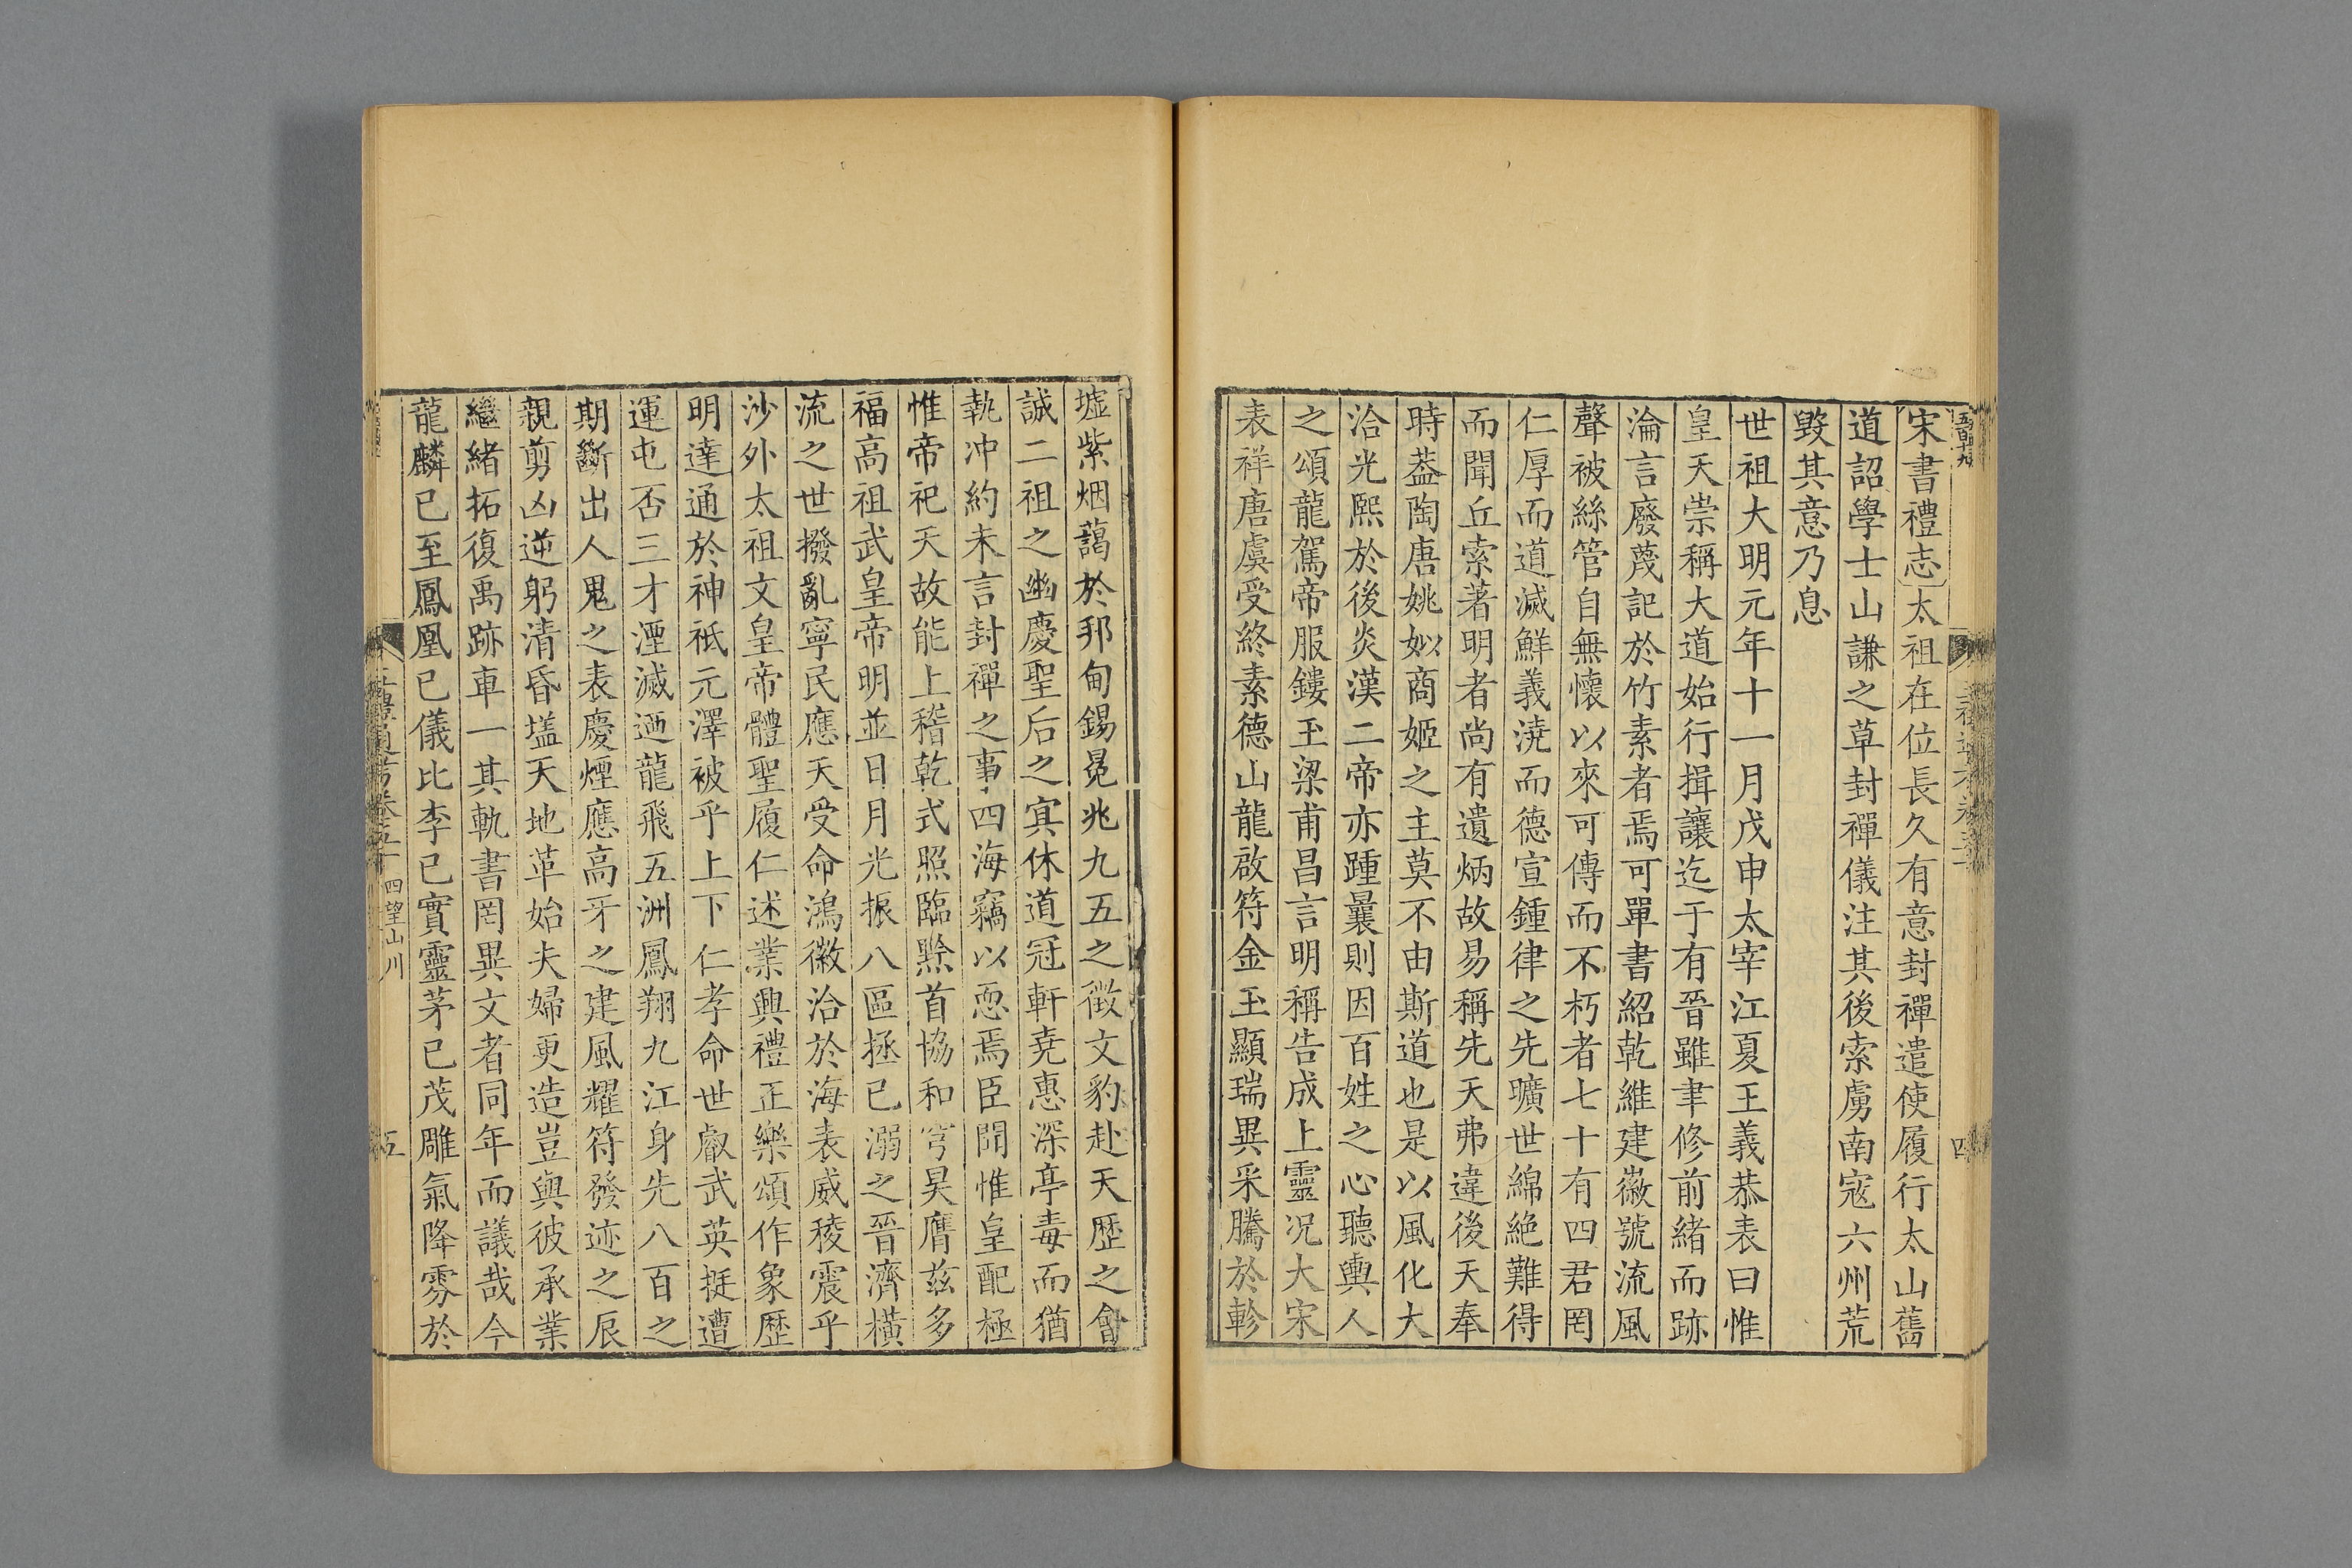 宋書禮志太祖在位長久有意封禪遣使履行太山舊
道詔學士山謙之草封禪儀注其後索虜南寇六州荒
毀其意乃息
世祖大明元年十一月戊申太宰江夏王義恭表曰惟
皇天崇稱大道始行揖讓迄于有晉雖聿修前緒而跡
淪言廢蔑記於竹素者焉可單書紹乾維建徽號流風
聲被絲管自無懷以來可傳而不朽者七十有四君罔
仁厚而道滅鮮義澆而德宣鍾律之先曠世綿絕難得
而聞丘索著明者尚有遺炳故易稱先天弗違後天奉
時葢陶唐姚姒商姬之主莫不由斯道也是以風化大
洽光熙於後炎漢二帝亦踵曩則因百姓之心聽輿人
之頌龍駕帝服鏤玉梁甫昌言明稱告成上靈况大宋
表祥唐虞受終素德山龍啟符金玉顯瑞異采騰於軫
墟紫烟藹於邦甸錫冕兆九五之徵文豹赴天歷之會
誠二祖之幽慶聖后之㝠休道冠軒堯惠深亭毒而猶
執冲約未言封禪之事四海竊以恧焉臣聞惟皇配極
惟帝祀天故能上稽乾式照臨黔首協和穹昊膺茲多
福高祖武皇帝明並日月光振八區拯已溺之晉濟橫
流之世撥亂寧民應天受命鴻徽洽於海表威稜震乎
沙外太祖文皇帝體聖履仁述業興禮正樂頌作象歷
明達通於神祇元澤被乎上下仁孝命世叡武英挺遭
運屯否三才湮滅迺龍飛五洲鳳翔九江身先八百之
期斷出人鬼之表慶煙應高牙之建風耀符發迹之辰
親剪凶逆躬清昏壒天地革始夫婦更造豈與彼承業
繼緒拓復禹跡車一其軌書罔異文者同年而議哉今
龍麟已至鳳凰已儀比李已實靈茅已茂雕氣降雰於
四望山川
五
四